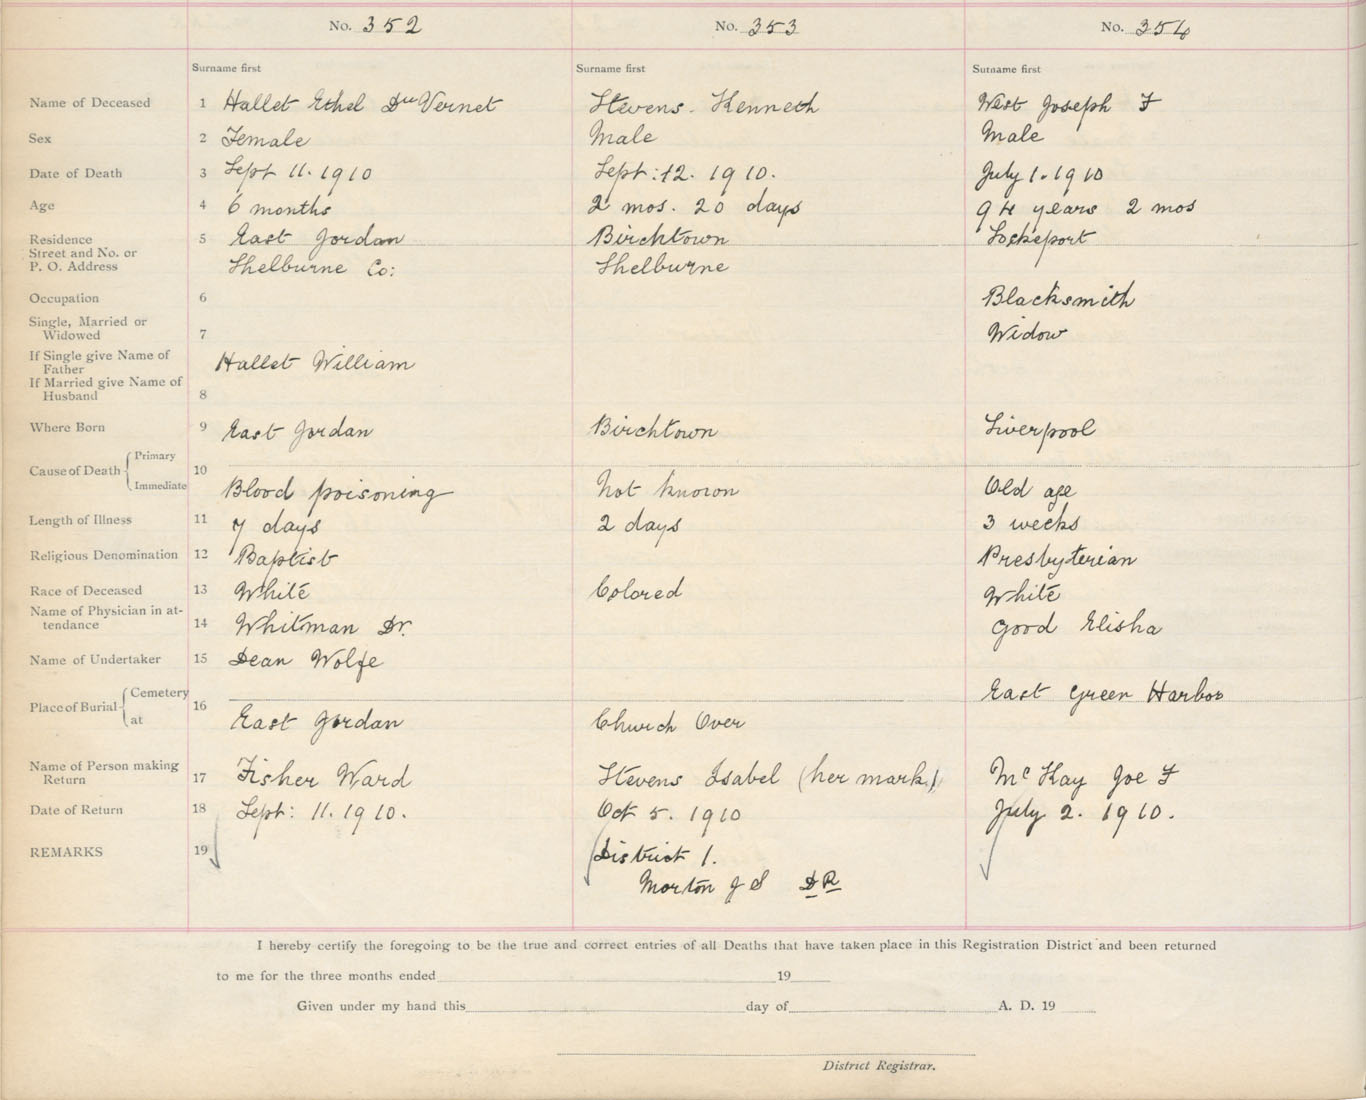 No. 352 No. 353 No. 354
Surname first Surname first Surname first
Name of Deceased 1 Hallet Ethel DuVernet Stevens. Kenneth West Joseph F
Sex 2 Female Male Male
Date of Death 3 Sept 11. 1910 Sept: 12. 1910. July 1. 1910
Age 4 6 months 2 mos. 20 days 94 years 2 mos
Residence 5 East Jordan Birchtown Lockeport
Street and No. or
P. O. Address Shelburne Co: Shelburne
Occupation 6 Blacksmith
Single, Married or
Widowed 7 Widow
If Single give Name of
Father Hallet William
If Married give Name of
Husband 8
Where Born 9 East Jordan Birchtown Liverpool
Cause of Death Primary 10
Immediate Blood poisoning Not known Old age
Length of Illness 11 7 days 2 days 3 weeks
Religious Denomination 12 Baptist Presbyterian
Race of Deceased 13 White Colored White
Name of Physician in at-
tendance 14 Whitman Dr. Good Elisha
Name of Undertaker 15 Dean Wolfe
Place of Burial Cemetery 16 East Green Harbor
at East Jordan Church Over
Name of Person making
Return 17 Fisher Ward Stevens Isabel (her mark) McKay Joe F
Date of Return 18 Sept: 11. 1910. Oct 5. 1910 July 2. 1910.
REMARKS 19 District 1.
Morton J S DR
I hereby certify the foregoing to be the true and correct entries of all Deaths that have taken place in this Registration District and been returned
to me for the three months ended 19
Given under my hand this day of A. D. 19
District Registrar.